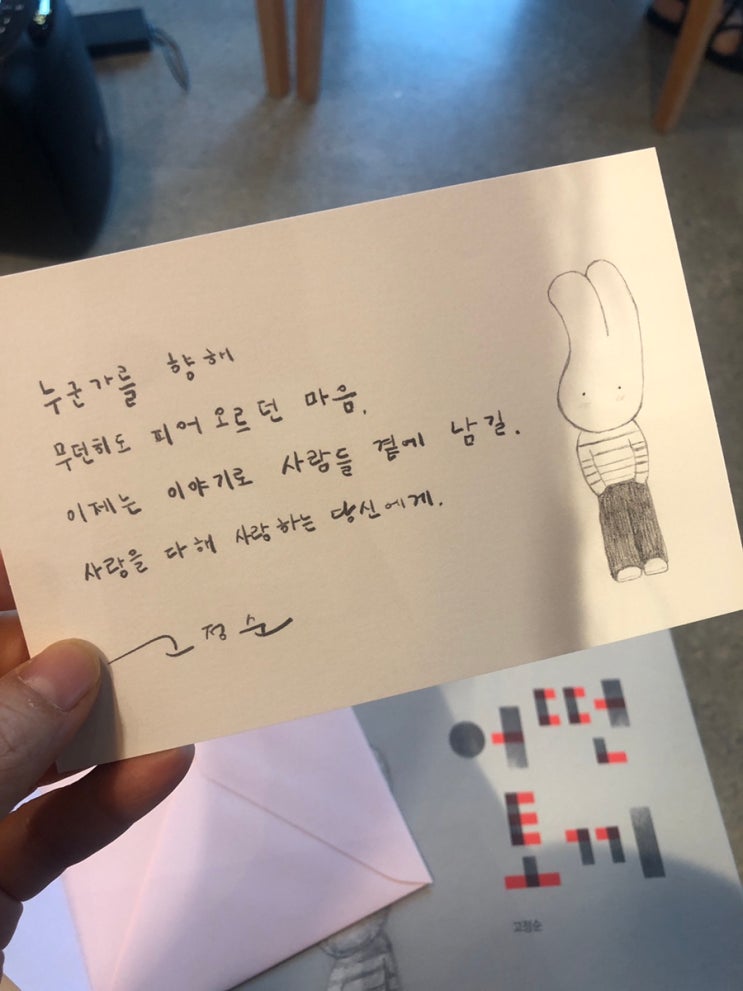 누군가를 향해
무던히도 피어오르던 마음.
이제는 이야기로 사람들 곁에 남길.
사랑을 다해 사랑하는 당신에게.
고정순
어떤
토끼
고정순